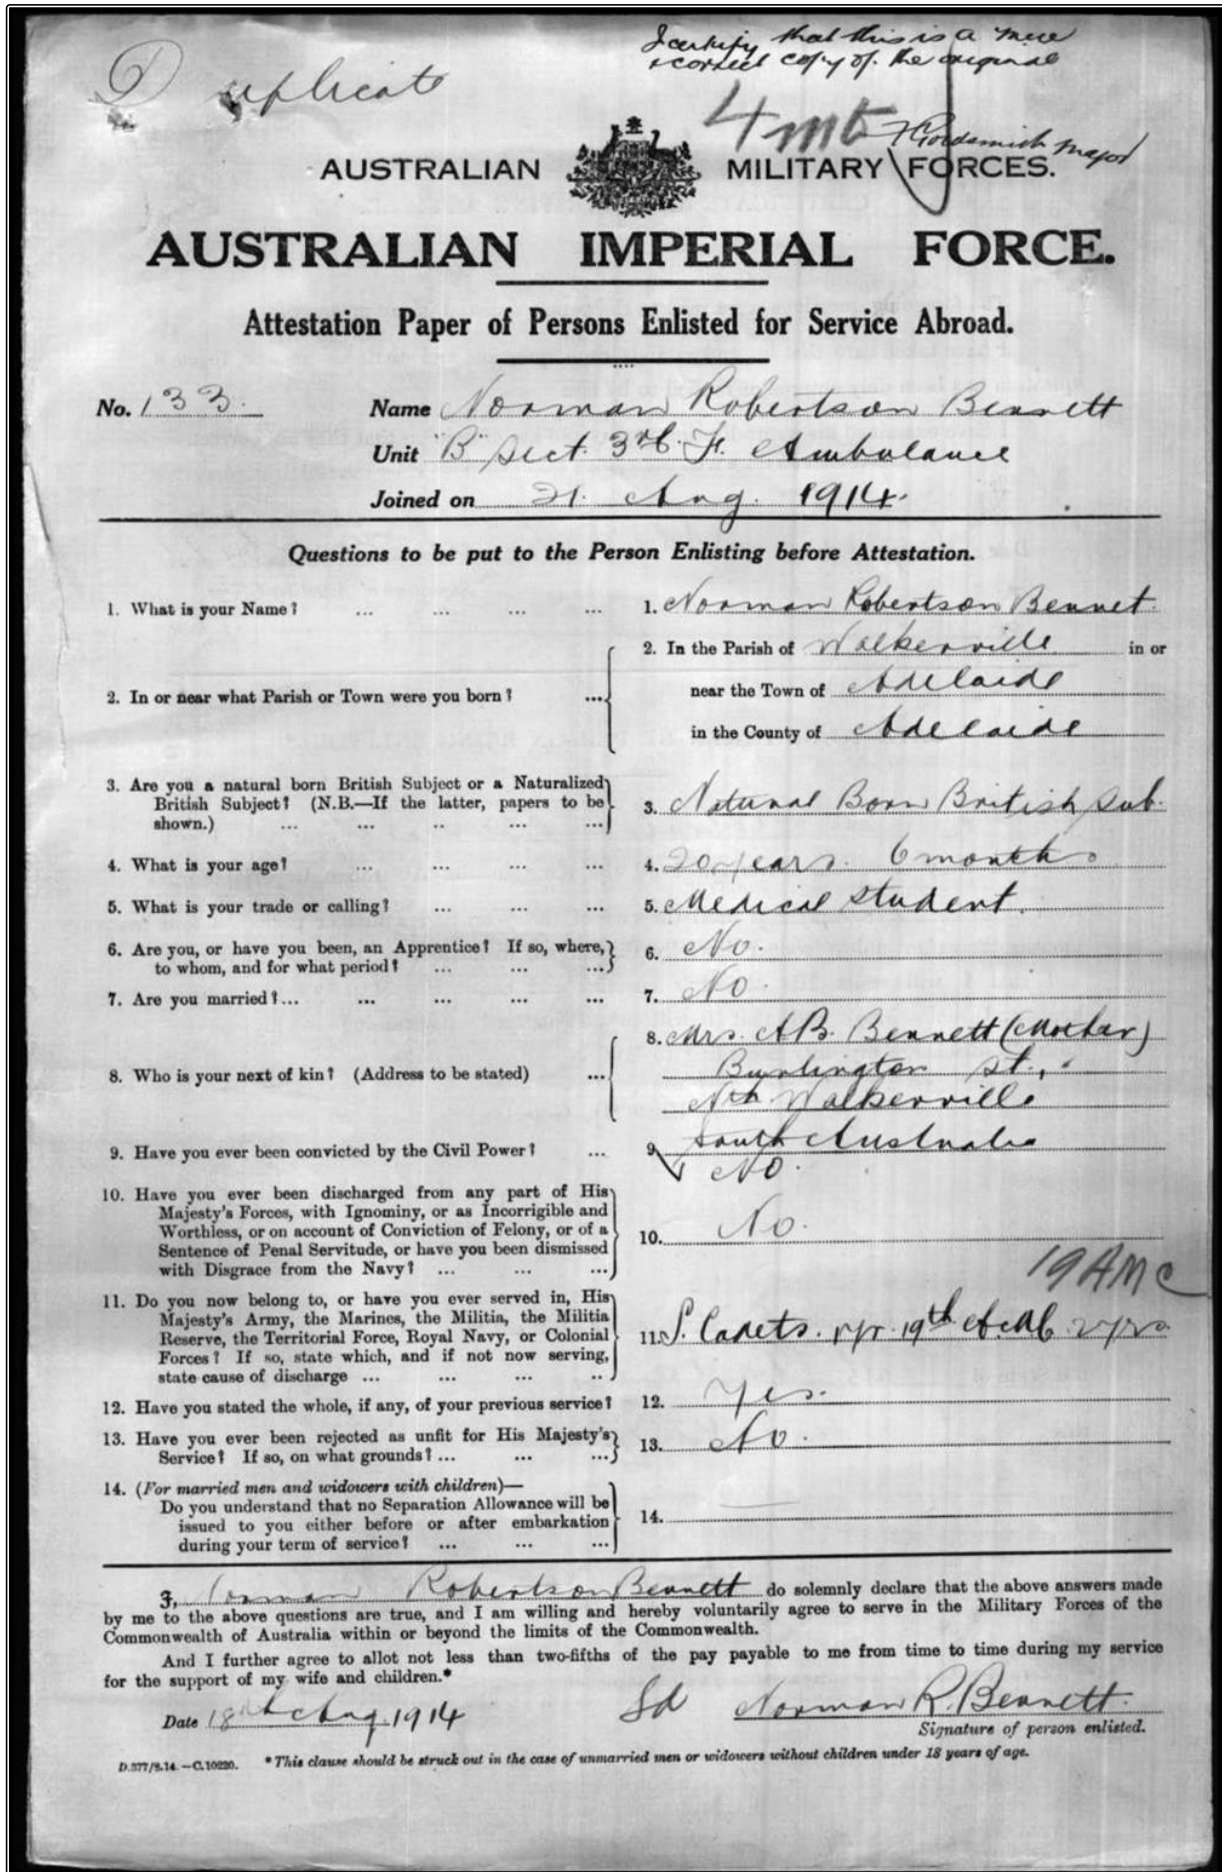 Duplicate
I certify that this is a true
& correct copy of the original
4 mb
Goldsmith Major
AUSTRALIAN MILITARY FORCES.
AUSTRALIAN IMPERIAL FORCE.
Attestation Paper of Persons Enlisted for Service Abroad.
No. 133. Name Norman Robertson Bennett
Unit "B" Sect. 3rd. F. Ambulance
Joined on 21. Aug. 1914.
Questions to be put to the Person Enlisting before Attestation.
1. What is your Name? ... ... ... ... 1. Norman Robertson Bennet.
2. In or near what Parish or Town were you born? ... 2. In the Parish of Walkerville in or
near the Town of Adelaide
in the County of Adelaide
3. Are you a natural born British Subject or a Naturalized
British Subject? (N.B.—If the latter, papers to be
shown.) ... ... .. ... ... 3. Natural Born British Sub.
4. What is your age? ... ... ... ... 4. 20 years. 6 months
5. What is your trade or calling? ... ... ... 5. Medical Student.
6. Are you, or have you been, an Apprentice? If so, where,
to whom, and for what period? ... ... ... 6. No.
7. Are you married?... ... ... ... ... 7. No.
8. Who is your next of kin? (Address to be stated) ... 8. Mrs. A.B. Bennett (Mother)
Burlington St.,
Nth Walkerville
South Australia
9. Have you ever been convicted by the Civil Power? ... 9. No.
10. Have you ever been discharged from any part of His
Majesty's Forces, with Ignominy, or as Incorrigible and
Worthless, or on account of Conviction of Felony, or of a
Sentence of Penal Servitude, or have you been dismissed
with Disgrace from the Navy? ... ... ... 10. No.
19 AMC
11. Do you now belong to, or have you ever served in, His
Majesty's Army, the Marines, the Militia, the Militia
Reserve, the Territorial Force, Royal Navy, or Colonial
Forces? If so, state which, and if not now serving,
state cause of discharge ... ... ... .. 11. S. Cadets. 19th 2 yrs
12. Have you stated the whole, if any, of your previous service? 12. Yes.
13. Have you ever been rejected as unfit for His Majesty's
Service? If so, on what grounds? ... ... ... 13. No.
14. (For married men and widowers with children)—
Do you understand that no Separation Allowance will be
issued to you either before or after embarkation
during your term of service? ... ... ... 14.
I, Norman Robertson Bennett do solemnly declare that the above answers made
by me to the above questions are true, and I am willing and hereby voluntarily agree to serve in the Military Forces of the
Commonwealth of Australia within or beyond the limits of the Commonwealth.
And I further agree to allot not less than two-fifths of the pay payable to me from time to time during my service
for the support of my wife and children.*
Date 18th Aug. 1914 Sd Norman R. Bennett.
Signature of person enlisted.
D.377/8.14.—C.10220. * This clause should be struck out in the case of unmarried men or widowers without children under 18 years of age.